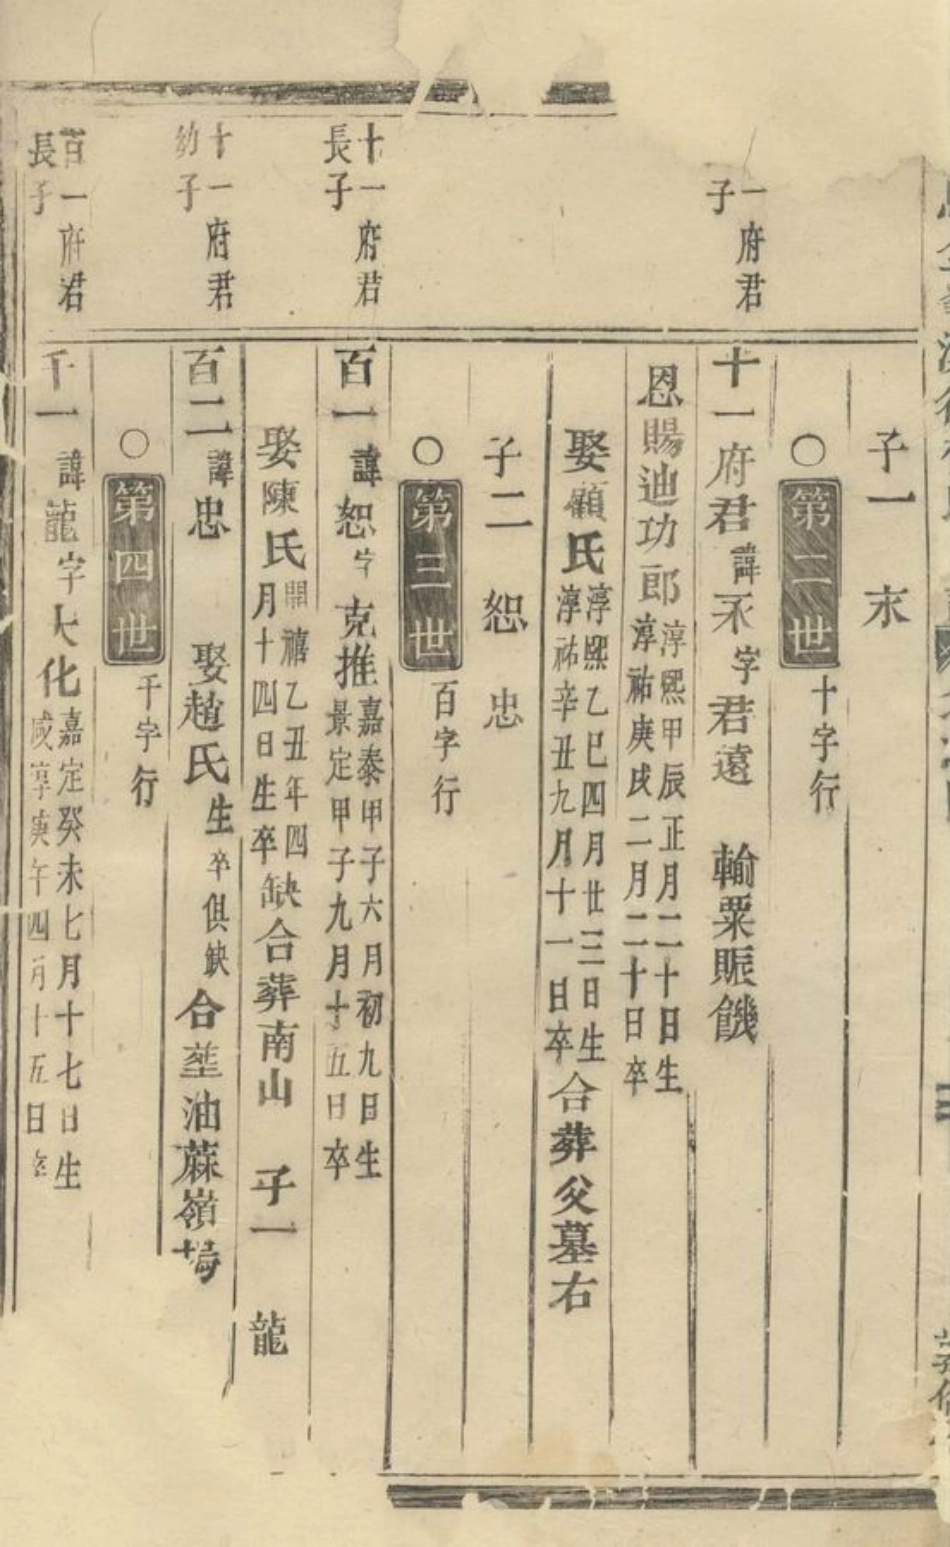 子一
○第二世 十字行
一府君
子
十一府君諱 字君遠 輸粟賑饑
恩賜迪功郎
淳熙甲辰正月二十日生
淳祐庚戌二月二十日卒
娶顧氏
淳熙乙巳四月廿三日生
淳祐辛丑九月十一日卒
合葬父墓右
子二 恕 忠
○第三世 百字行
十一府君
長子
百一諱恕字克推
嘉泰甲子六月初九日生
景定甲子九月十五日卒
娶陳氏
開禧乙丑年四
月十四日生卒
缺合葬南山 子一 龍
十一府君
幼子
百二諱忠 娶趙氏生卒俱缺合塟油蔴嶺塢
○第四世 千字行
百一府君
長子
千一諱龍字大化
嘉定癸未七月十七日生
咸淳庚午四月十五日卒